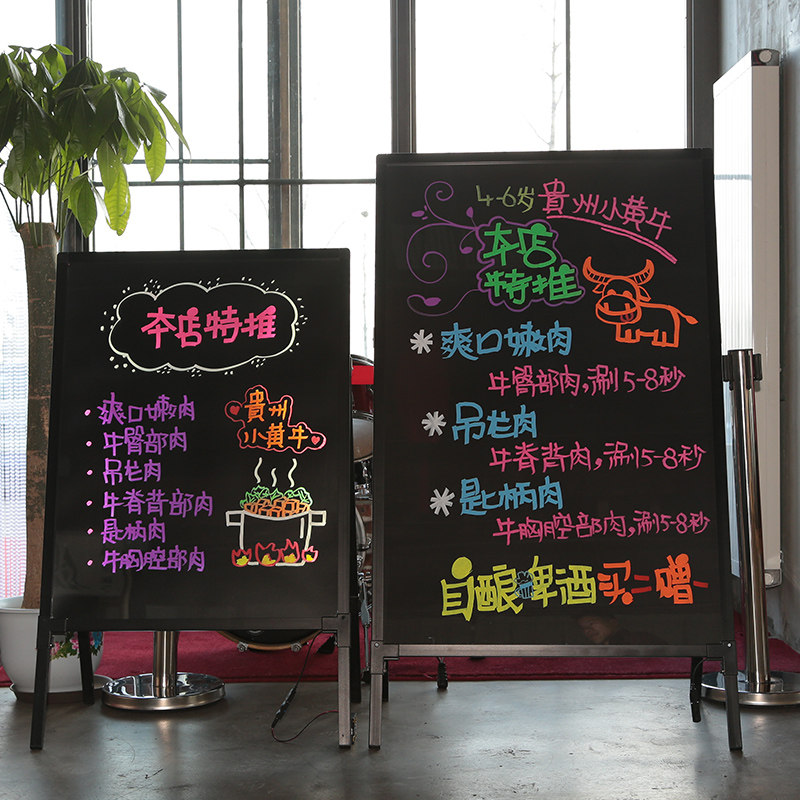 本店特推
爽口嫩肉
牛臀部肉
吊龙肉
牛脊背部肉
匙柄肉
牛胸腔部肉
貴州
小黄牛
4-6岁貴州小黄牛
本店
特推
爽口嫩肉
牛臀部肉,涮5-8秒
吊龙肉
牛脊背肉,涮5-8秒
匙柄肉
牛胸腔部肉,涮5-8秒
自酿啤酒买二赠一